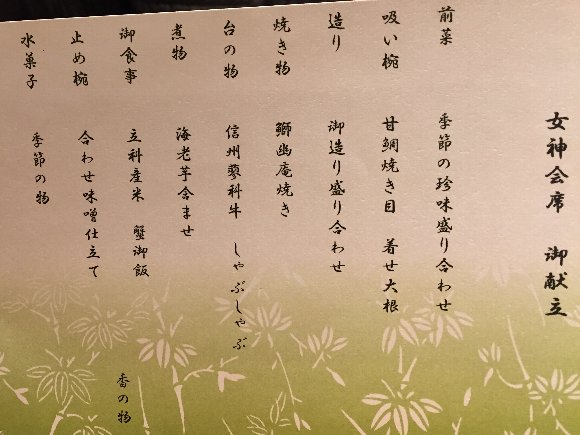 女神会席　御献立
前菜　季節の珍味盛り合わせ
吸い椀　甘鯛焼き目　着せ大根
造り　御造り盛り合わせ
焼き物　鰤幽庵焼き
台の物　信州蓼科牛　しゃぶしゃぶ
煮物　海老芋含ませ
御食事　立科産米　蟹御飯　香の物
止め椀　合わせ味噌仕立て
水菓子　季節の物